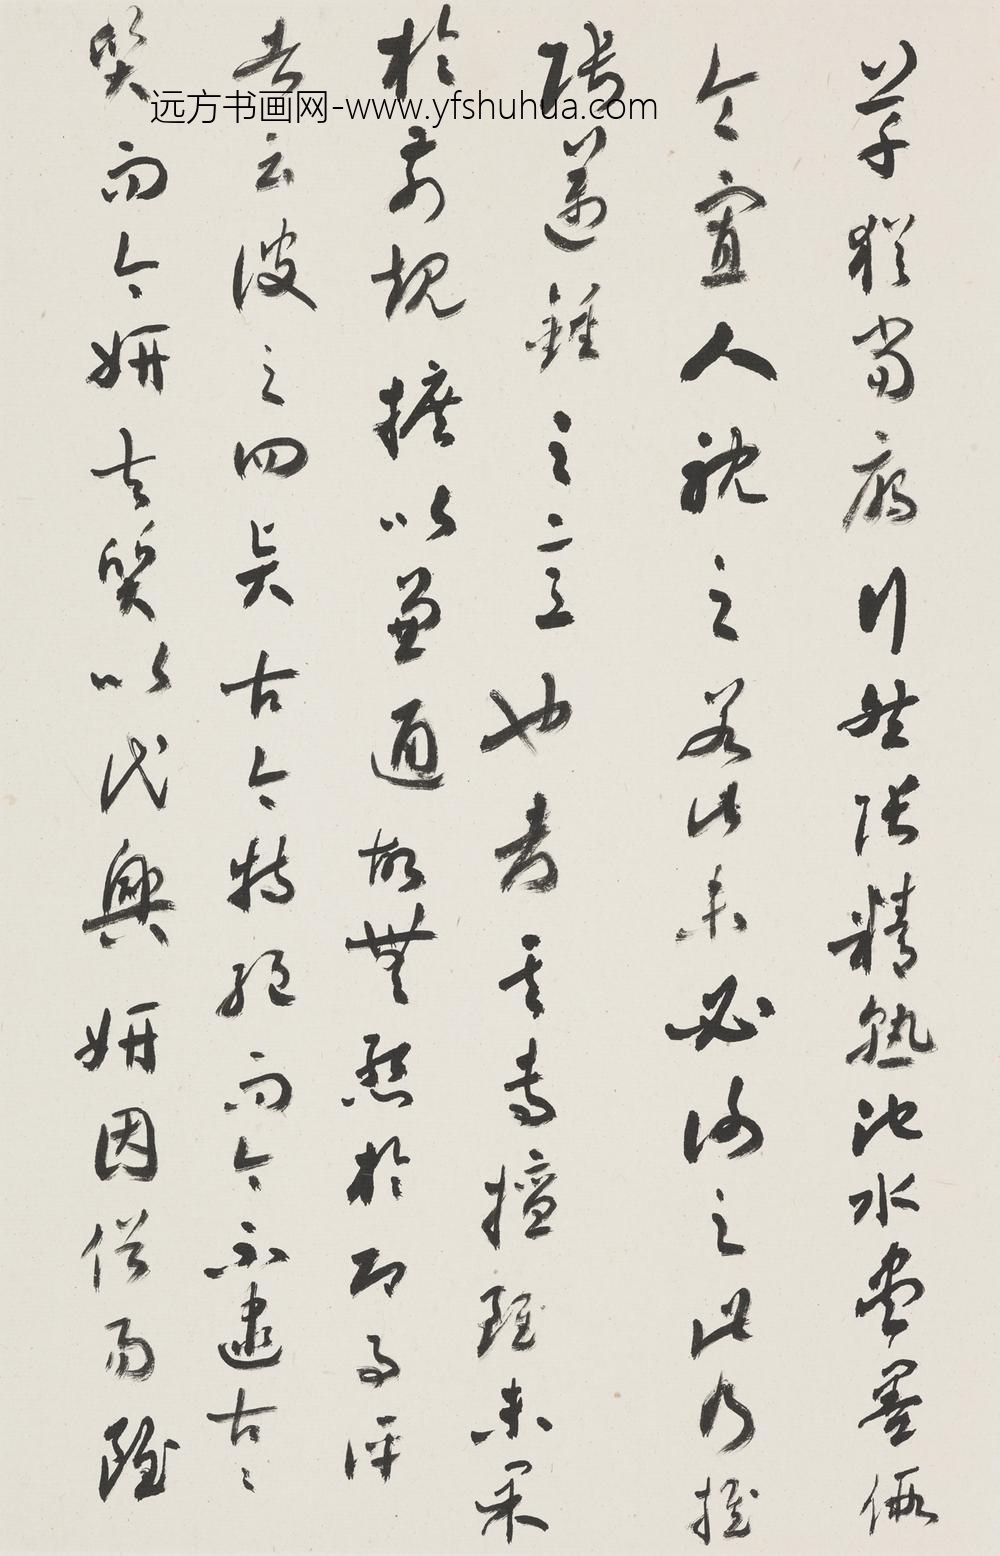 草猶當鴈行然張精熟池水盡墨假
令寡人耽之若此未必謝之此乃推
張邁鍾之意也考其專擅雖未果
於前規摭以兼通故無慙於即事評
者云彼之四賢古今特絕而今不逮古〻
質而今妍夫質以代興妍因俗易雖
远方书画网-www.yfshuhua.com